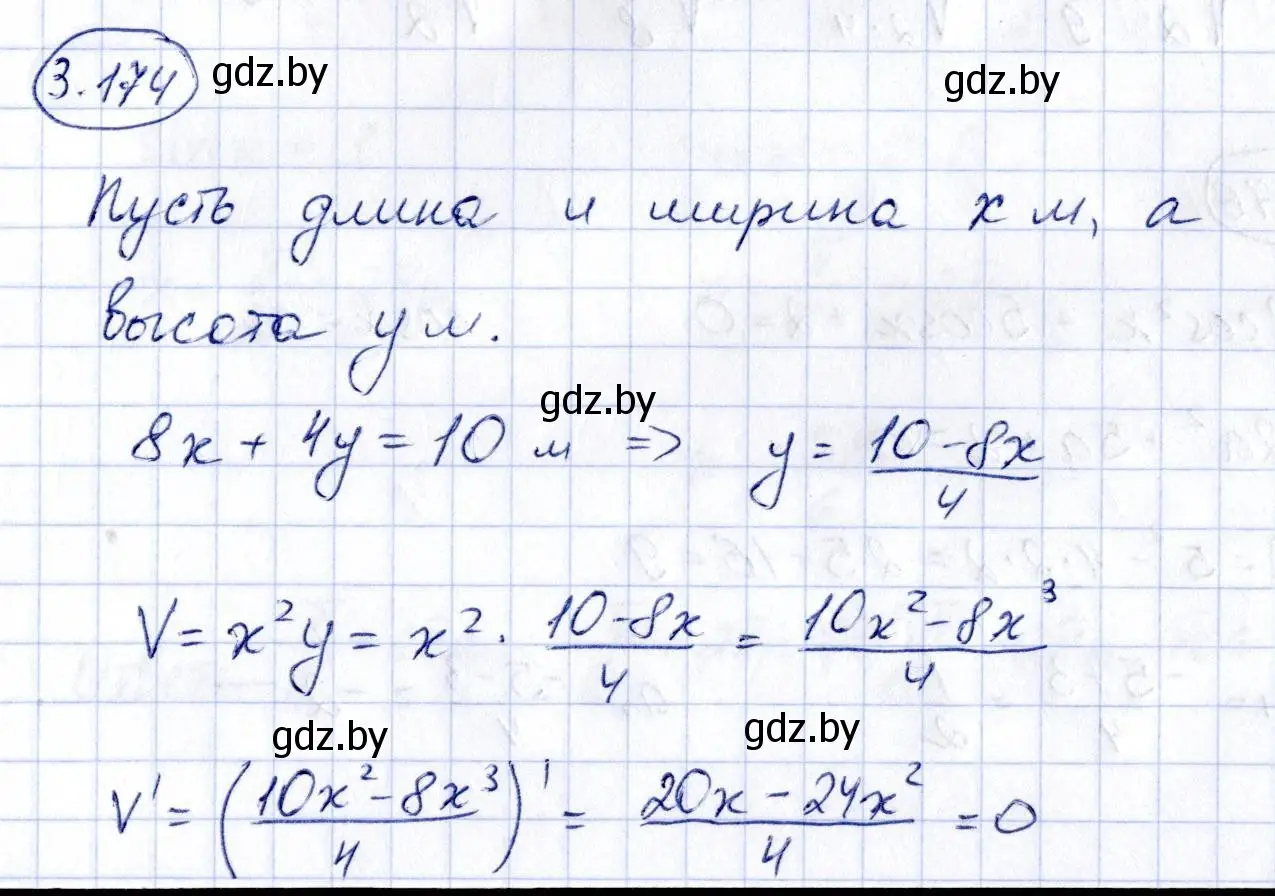 3.174 gdz.by gdz.by
Пусть длина и ширина х м, а
высота у м.
gdz.by
8x + 4y = 10 м => y = (10-8x)/4
V = x²y = x² · (10-8x)/4 = (10x²-8x³)/4
gdz.by gdz.by
V' = ((10x²-8x³)/4)' = (20x - 24x²)/4 = 0